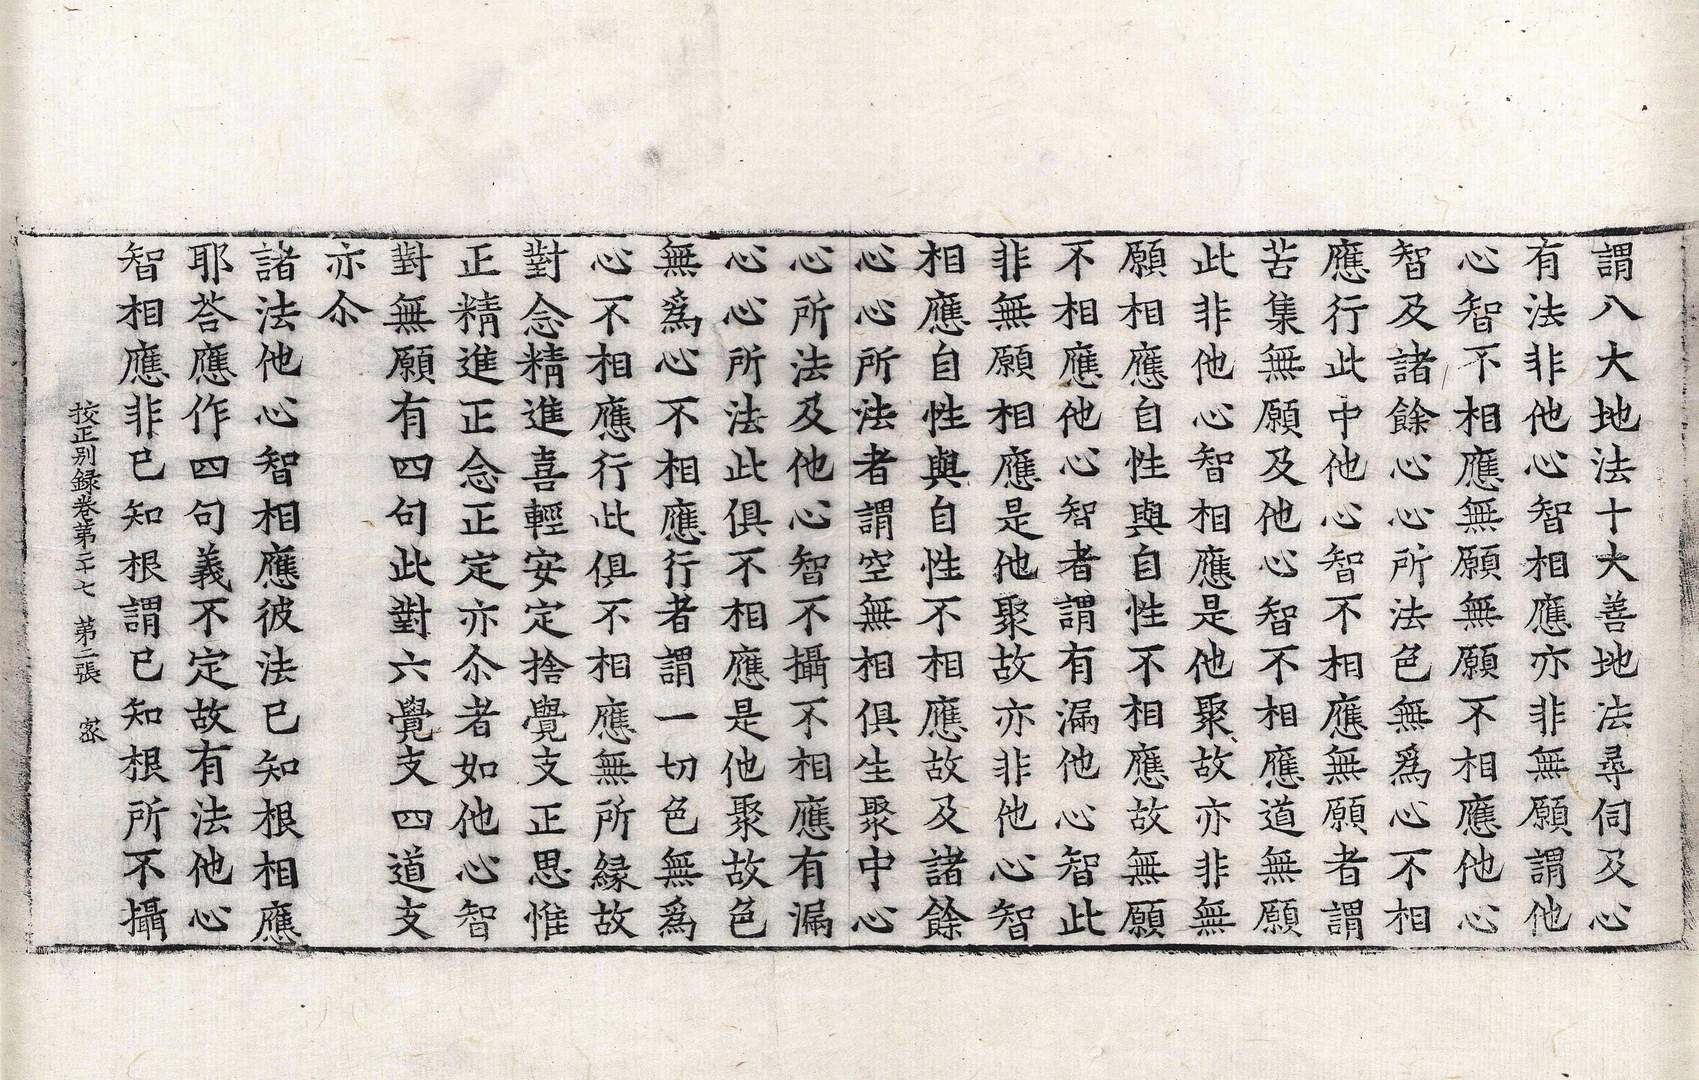 謂八大地法十大善地法尋伺及心
有法非他心智相應亦非無願謂他
心智不相應無願無願不相應他心
智及諸餘心心所法色無爲心不相
應行此中他心智不相應無願者謂
苦集無願及他心智不相應道無願
此非他心智相應是他聚故亦非無
願相應自性與自性不相應故無願
不相應他心智者謂有漏他心智此
非無願相應是他聚故亦非他心智
相應自性與自性不相應故及諸餘
心心所法者謂空無相俱生聚中心
心所法及他心智不攝不相應有漏
心心所法此俱不相應是他聚故色
無爲心不相應行者謂一切色無爲
心不相應行此俱不相應無所縁故
對念精進喜輕安定捨覺支正思惟
正精進正念正定亦尒者如他心智
對無願有四句此對六覺支四道支
亦尒
諸法他心智相應彼法已知根相應
耶荅應作四句義不定故有法他心
智相應非已知根謂已知根所不攝
挍正别録卷第二十七　第二張　宻